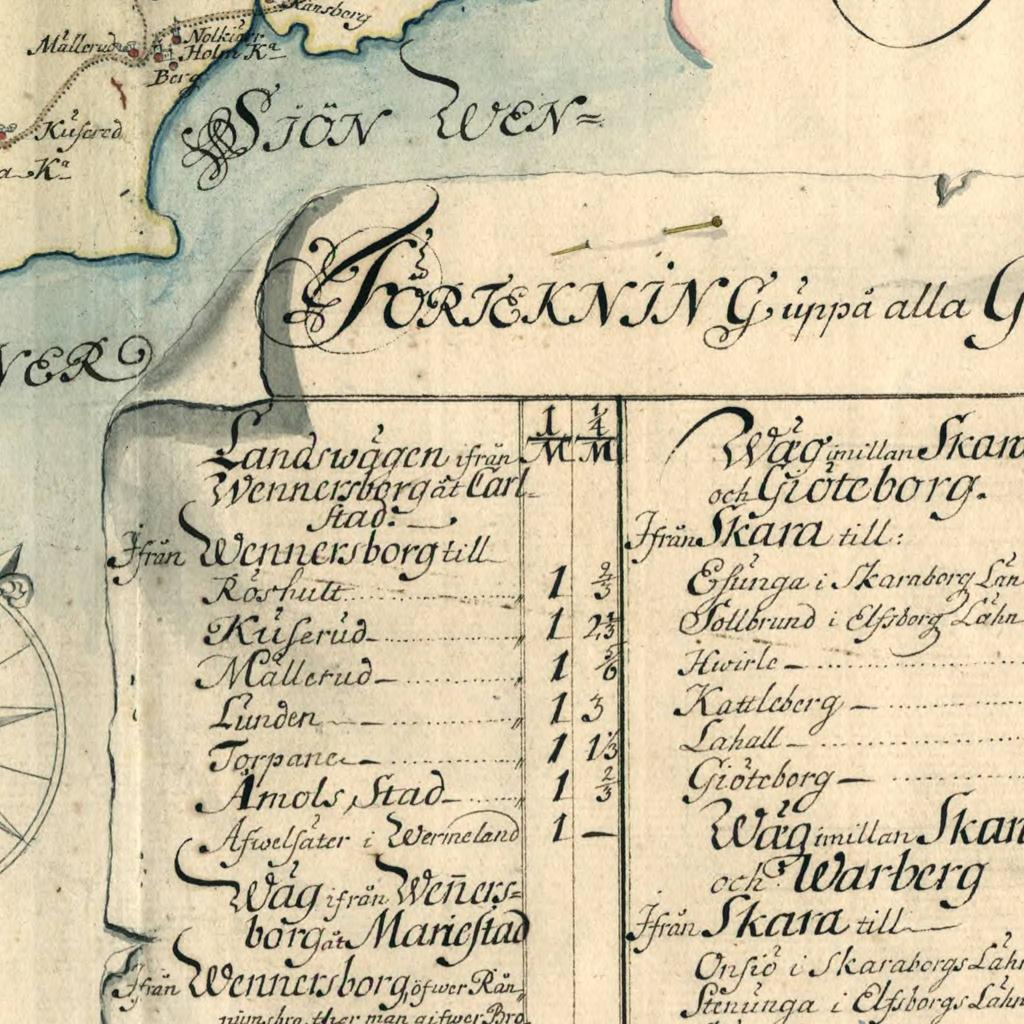 Ransborg
Mällerud
Holm Kª
Berg
Küserud
a Kª
SJÖN WEN=
NER
FÖRTEKNING uppå alla G
1/M 1/4/M
Landswägen ifrån
Wennersborg åt Carl-
stad.
Ifrån Wennersborg till
Röshult 1 2/3
Küserud 1 2 1/3
Mällerud 1 5/6
Lunden 1 3
Torpane 1 1 1/3
Åmols Stad 1 2/3
Afwelsäter i Wermeland 1 —
Wäg ifrån Wen̄ers=
borg åt Mariestad
Ifrån Wennersborg, öfwer Rån
numsbro, ther man gifwer Bro
Wäg imillan Skar
och Giöteborg.
Ifrån Skara till:
Esunga i Skaraborg Län
Sollbrund i Elfsborg Lähn
Hwirle
Kattleberg
Lahall
Giöteborg
Wäg imillan Skar
och Warberg
Ifrån Skara till
Onsiö i Skaraborgs Lähn
Stenunga i Elfsborgs Lähn